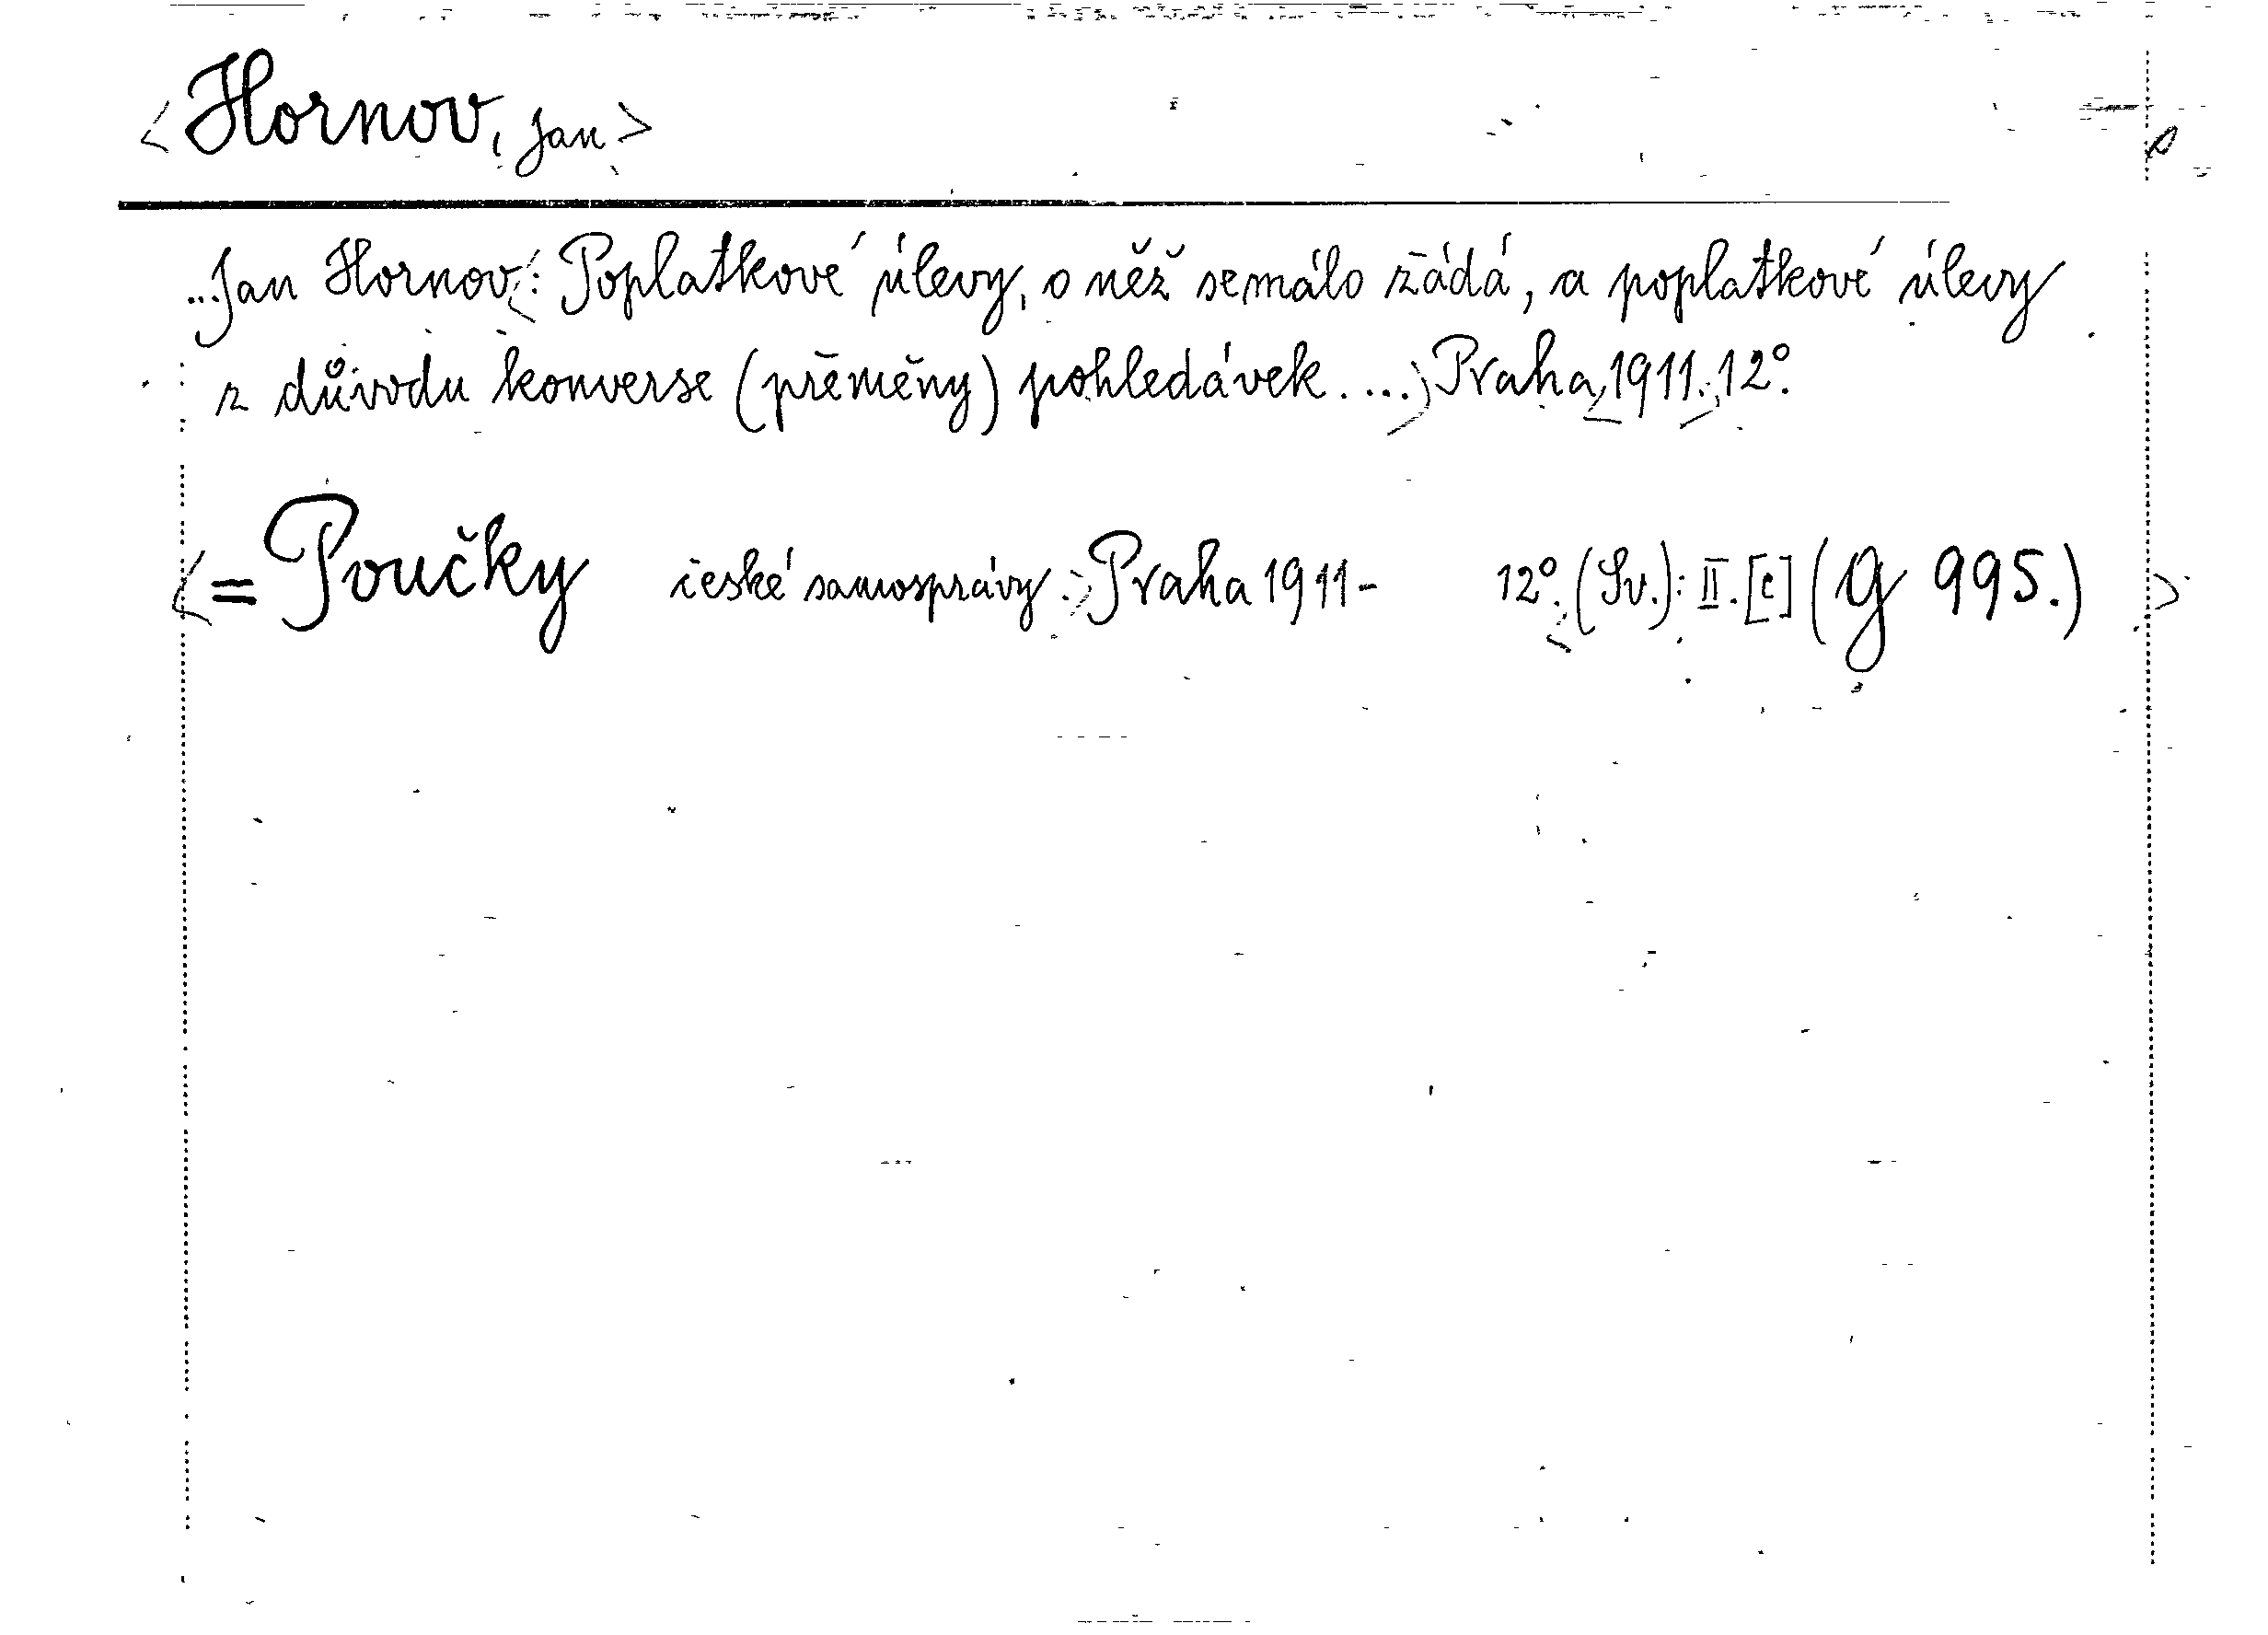 <Hornov, Jan>
...Jan Hornov<: Poplatkové úlevy, o něž se málo žádá, a poplatkové úlevy
z důvodu konverse (přeměny) pohledávek. ...> Praha, 1911. 12°.
<= Poučky české samosprávy. Praha 1911- 12°. (Sv.): II. [c] (G 995.) >